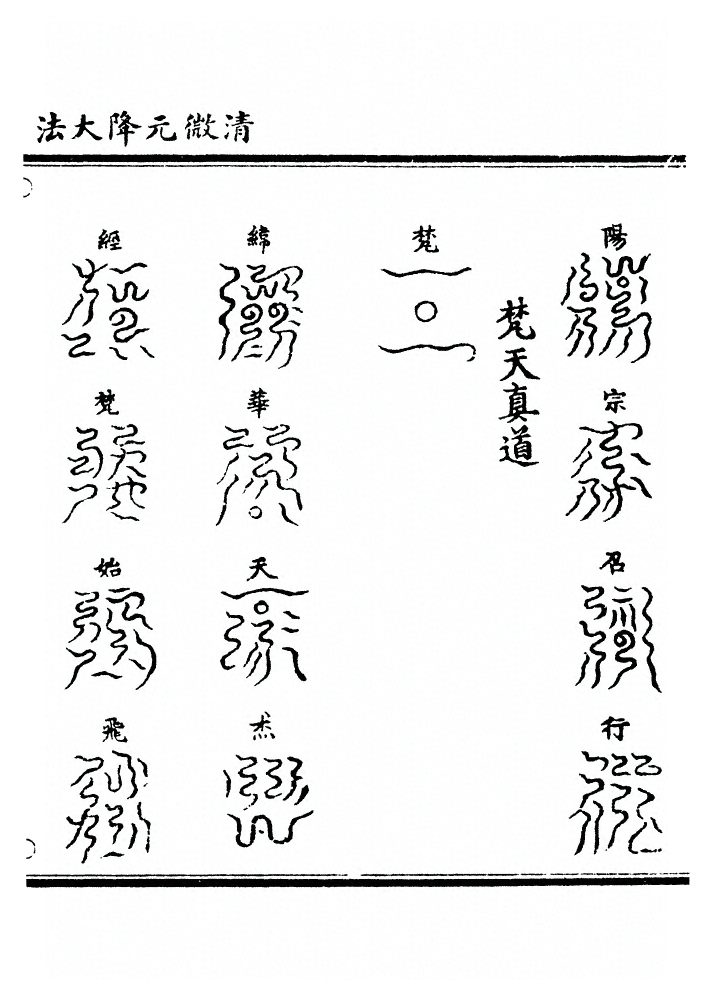 清微元降大法
陽
宗
召
行
梵天真道
梵
緯
華
天
炁
經
梵
始
飛